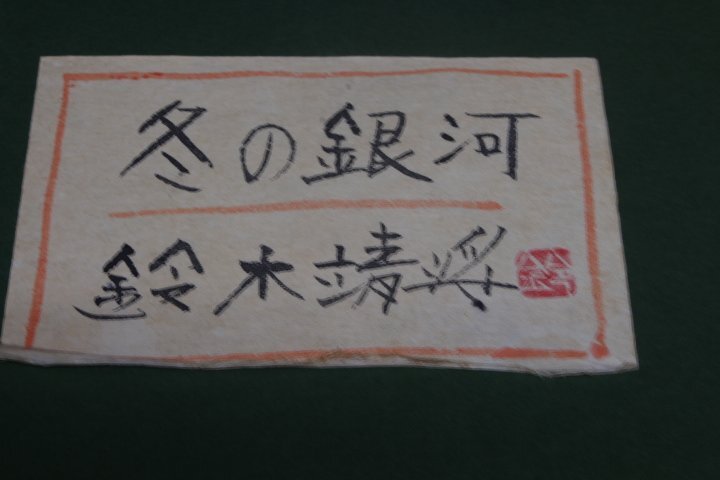 冬の銀河
鈴木靖将